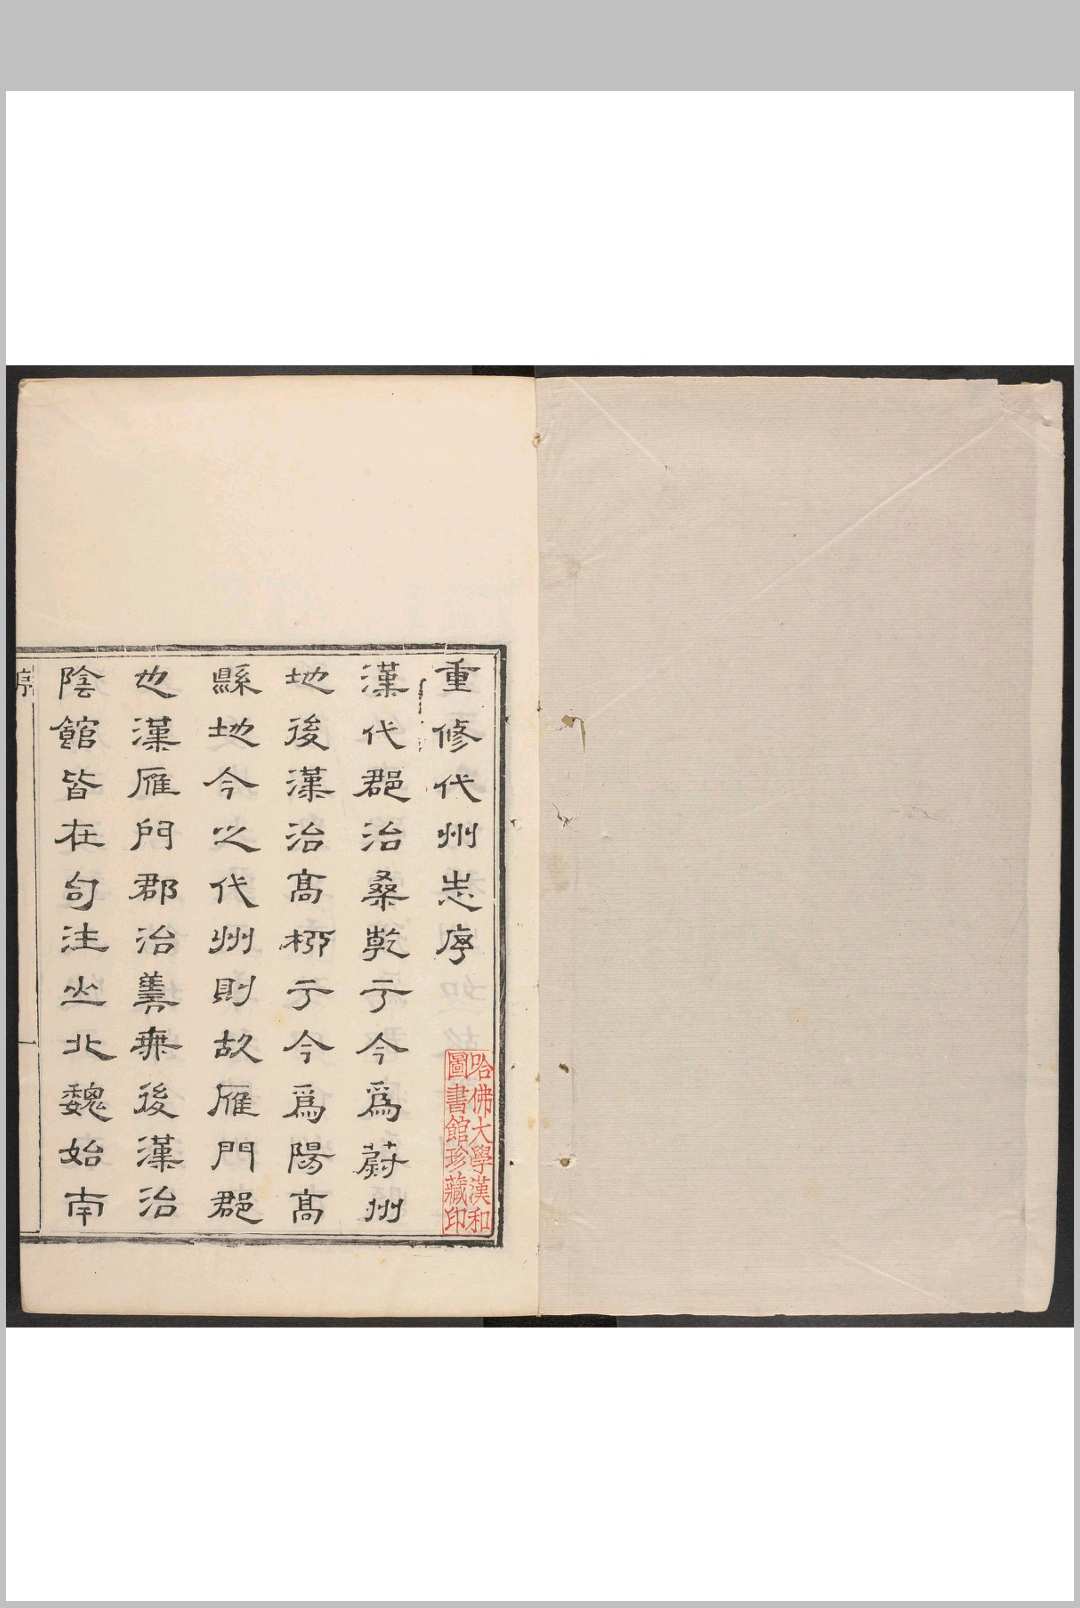 重修代州志序
漢代郡治桑乾于今爲蔚州
地後漢治高桺于今爲陽高
縣地今之代州則故雁門郡
也漢雁門郡治善無後漢治
陰館皆在句注之北魏始南
序
哈佛大學漢和
圖書館珍藏印